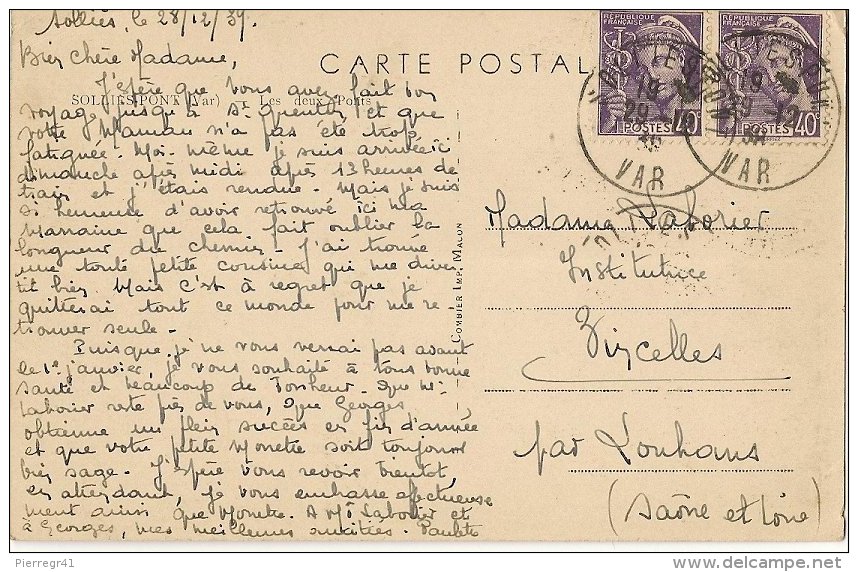 Solliès, le 28/12/39.
Bien chère Madame,
J'espère que vous avez fait bon
voyage jusqu'à St Quentin et que
votre Maman n'a pas été trop
fatiguée. Moi-même je suis arrivée ici
dimanche après midi après 13 heures de
train et j'étais rendue. Mais je suis
si heureuse d'avoir retrouvé ici ma
Mamaine que cela fait oublier la
longueur du chemin. J'ai trouvé
une toute petite cousine qui me diver
tit bien. Mais c'est à regret que je
quitterai tout ce monde pour me re-
trouver seule.
Puisque je ne vous verrai pas avant
le 1er janvier, je vous souhaite à tous bonne
santé et beaucoup de bonheur. Que Mr
Laborier reste près de vous, que Georges
obtienne un plein succès en fin d'année
et que votre petite Monette soit toujours
bien sage. J'espère vous revoir bientôt,
en attendant, je vous embrasse affectueuse
ment ainsi que Monette. A Mr Laborier et
à Georges, mes meilleures amitiés. Paulette
SOLLIÈS-PONT (Var) — Les deux Ponts
CARTE POSTALE
COMBIER IMP. MACON
RÉPUBLIQUE FRANÇAISE
POSTES 40c
RÉPUBLIQUE FRANÇAISE
POSTES 40c
19
29 -12
VAR
19
29 -12
VAR
Madame Laborier
Institutrice
Vincelles
par Louhans
(Saône et Loire)
Pierregr41
www.delcampe.net